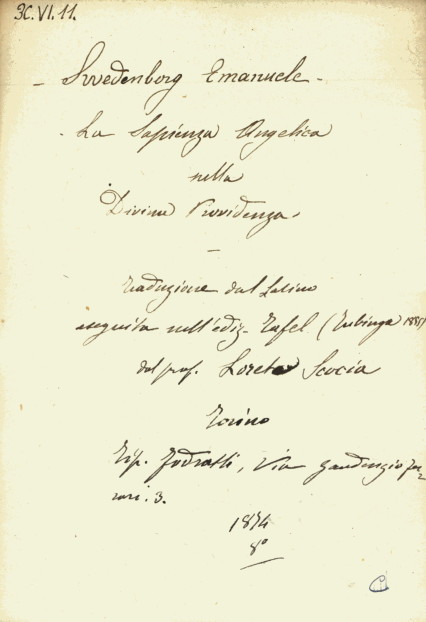 3C.VI.11.
- Swedenborg Emanuele -
- La Sapienza Angelica
nella
Divina Provvidenza.
-
traduzione dal Latino
eseguita sull'ediz. Tafel (Tubinga
dal prof. Loreto Scocia
Torino
Tip. Fodratti, Via Gaudenzio Fer-
rari. 3.
1874
8°